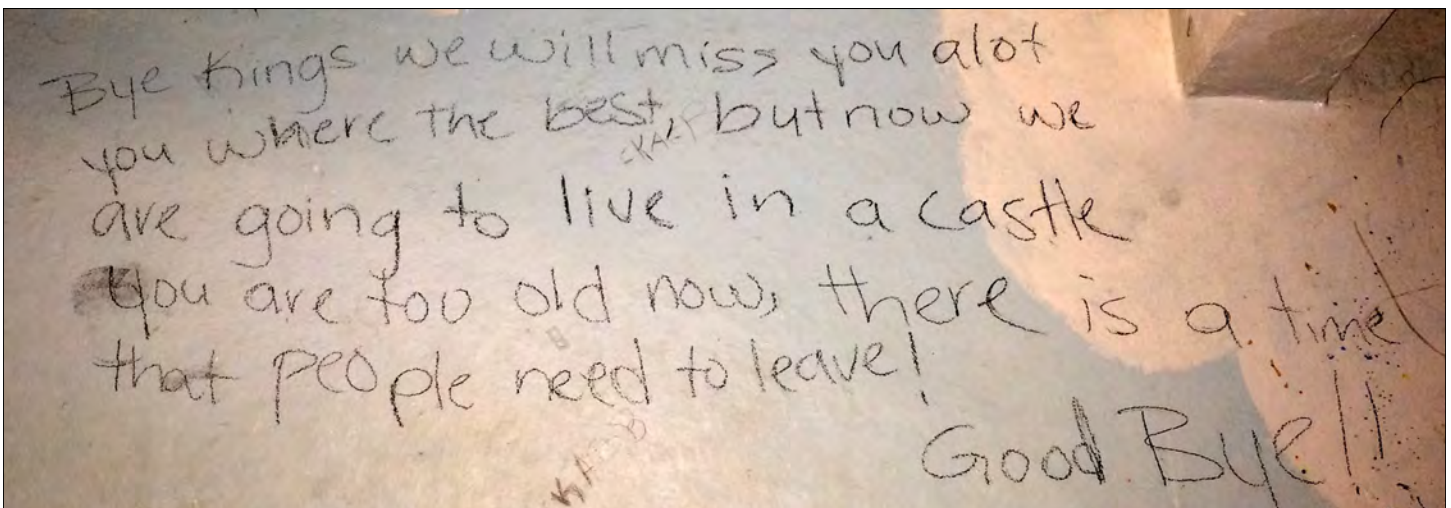 Bye Kings we will miss you alot
you where the best, but now we
are going to live in a castle
you are too old now, there is a time
that people need to leave!
Good Bye!!